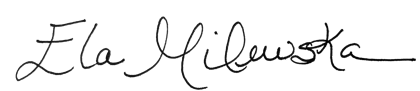 Ela Milewska